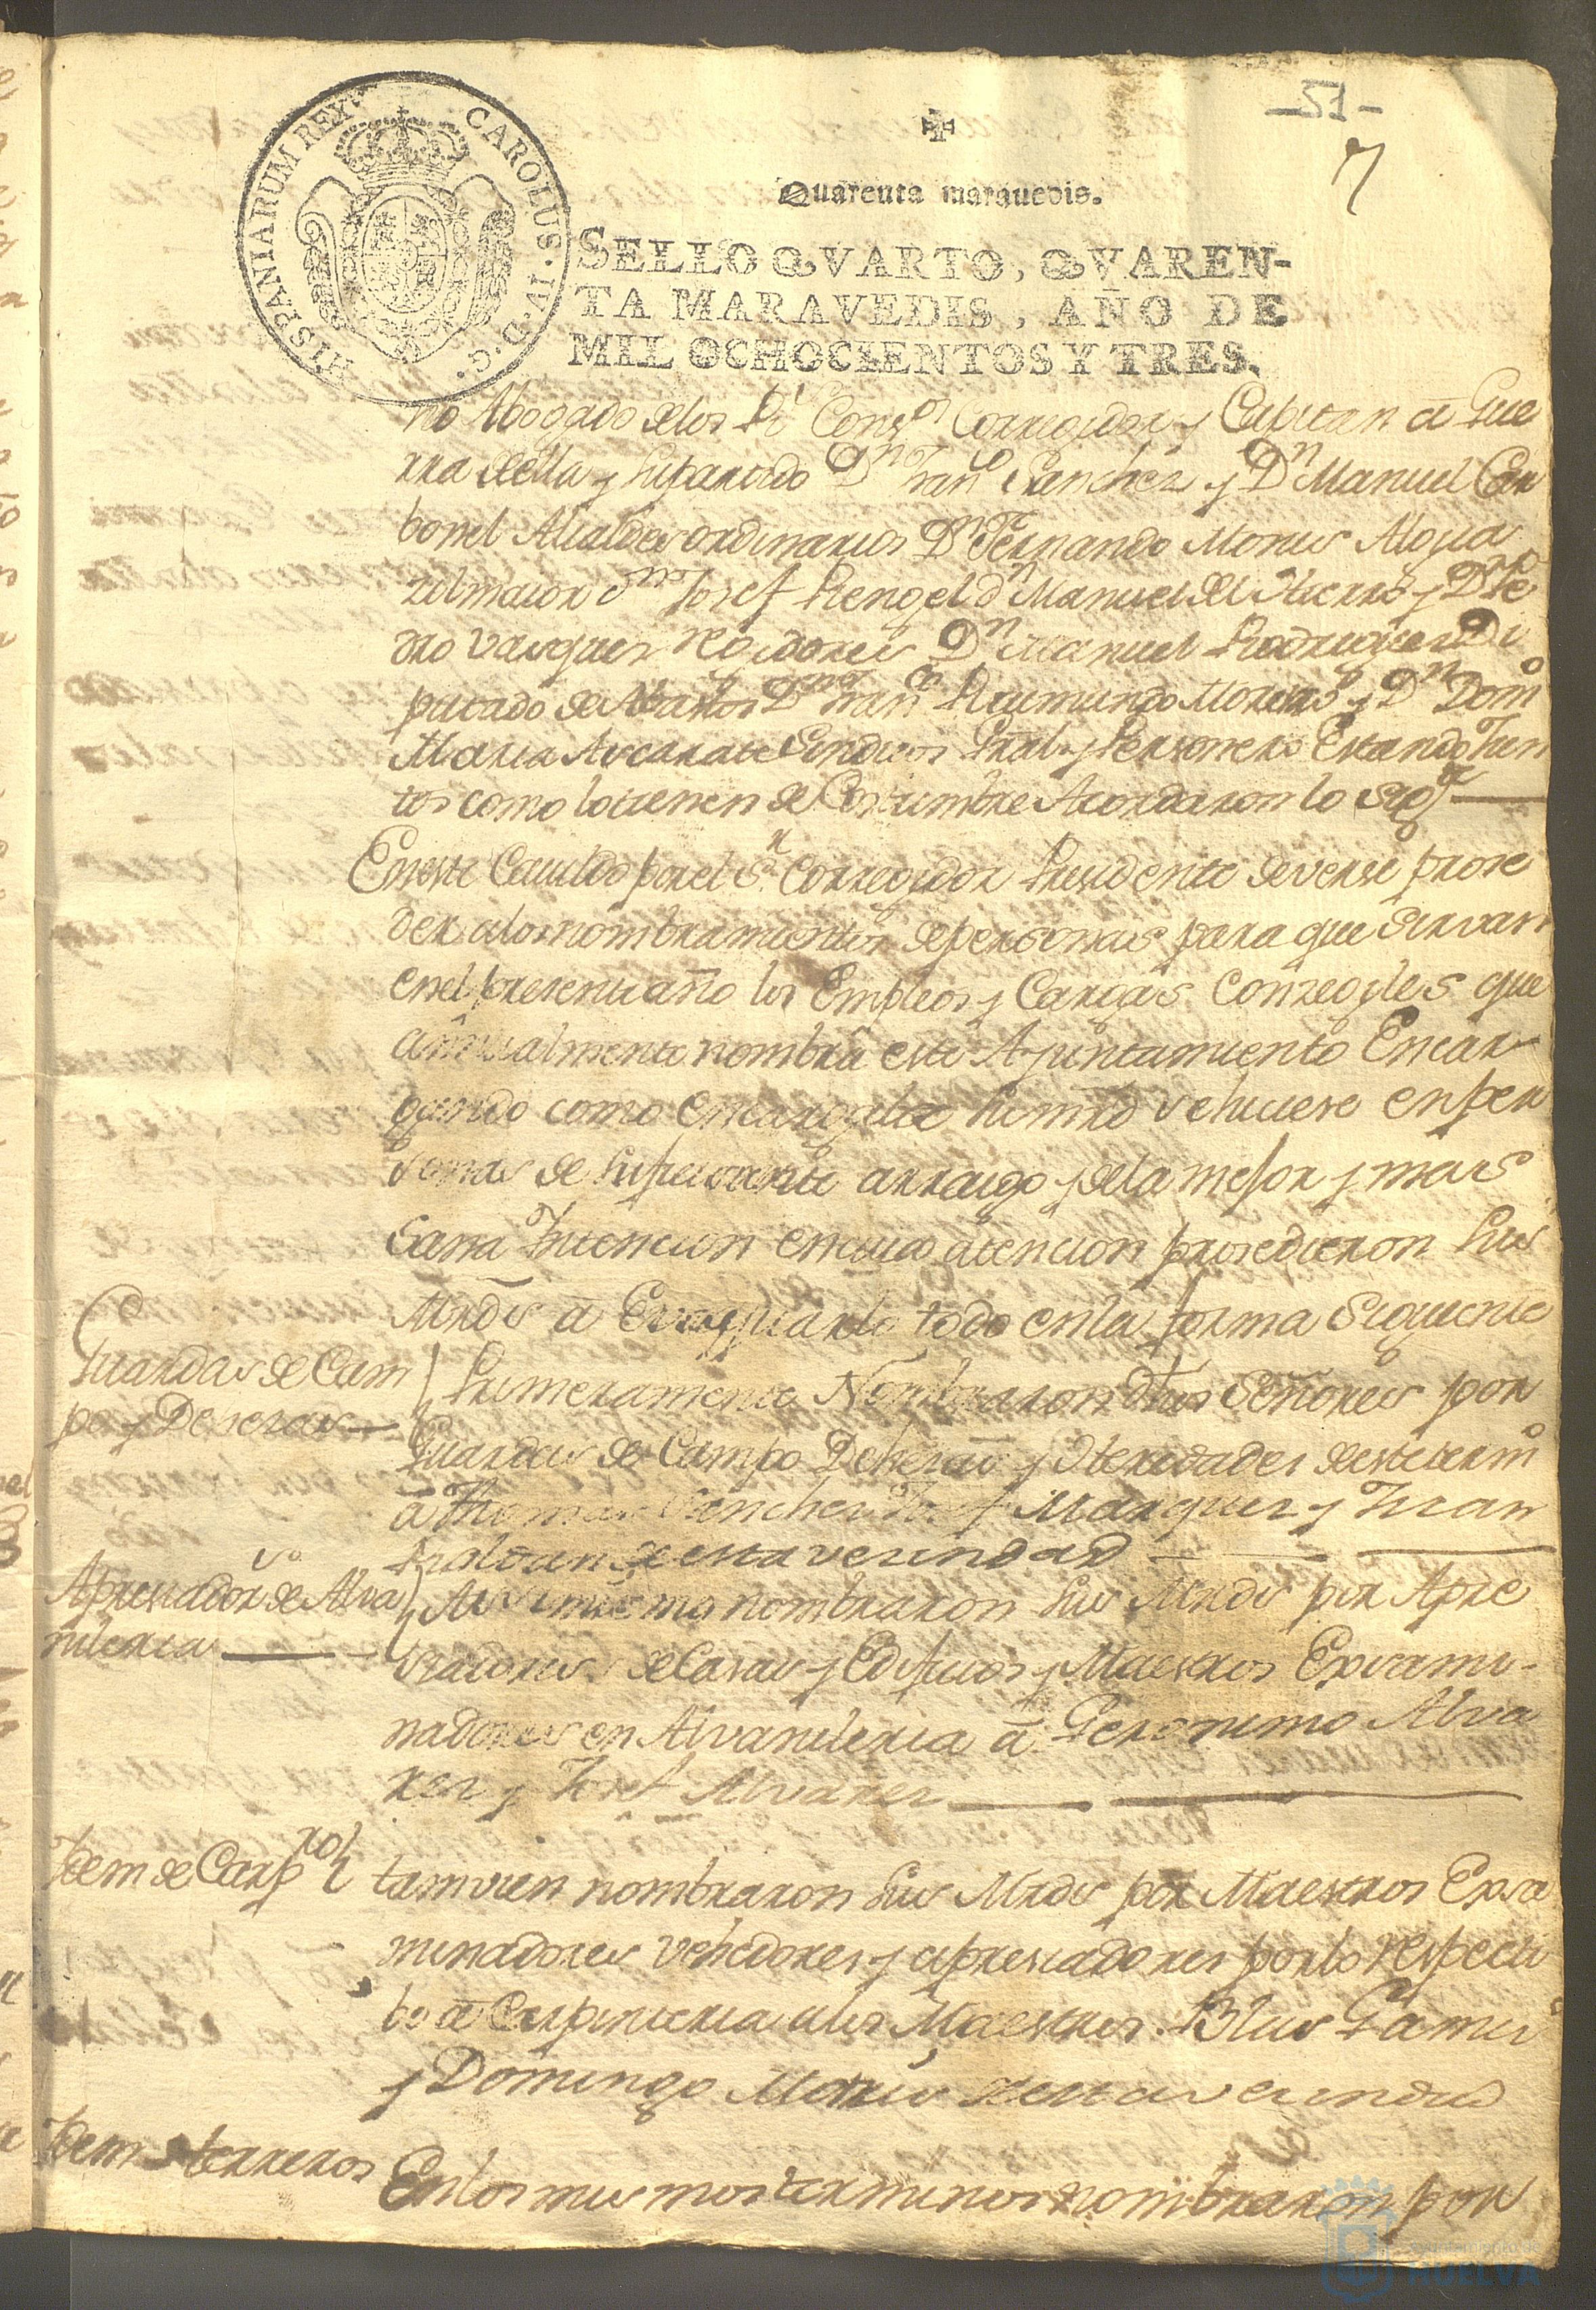 -51-
7
HISPANIARUM REX
CAROLUS IV. D. G.
Quarenta maravedis.
SELLO QVARTO, QVAREN-
TA MARAVEDIS, AÑO DE
MIL OCHOCIENTOS Y TRES.
no Abogado de los Rs Consos Corregidor y Capitan a Gue
rra de ella y su partido Dn Franco Sanchez y Dn Manuel Car
bonel Alcaldes ordinarios Dn Fernando Mones Alogua
zil maior Dn Josef Rengel Dn Manuel del Hierro y Dn Pe
dro Vasques Regidores Dn Manuel Rodriguez Di
putado de Abastos Dn Franco Raimundo Moreno y Dn Domo
Maria Ascarate Sindicos Gral y Personero Estando Jun
tos como lo tienen de Costumbre Acordaron lo sigte
En este Cavildo por el Sr Corregidor Presidente deverse proce
der a los nombramientos de personas para que sirvan
en el presente año los Empleos y Cargas Conzegiles que
annualmente nombra este Ayuntamiento Encar-
gando como encarga se hiciese en per
sonas de suficiente arraigo y de la mejor y mas
sana Intencion en cuia atencion prosedieron sus
Mrds a Evaquarlo todo en la forma siguiente
Guardas de Cam
po y Dehesas
Primeramente Nombraron dhos Señores por
Guardas de Campo Dehesas y Heredades de este termo
a Thomas Sanchez Josef Marquez y Juan
Roldan de esta vecindad
Apresiador de Alva
ñileria
Asi mismo nombraron sus Mrds por Apre
siadores de Casas y Edificios y Maestros Exsami-
nadores en Alvañileria a Geronimo Alva
rez y Josef Alvarez
Idem de Carpros
tamvien nombraron sus Mrds por Maestros Exsa
minadores vehedores y apresiadores por lo respecti
bo a Carpinteria a los Maestros Blas Gamis
y Domingo Mones de esta vecindad
Idem Herreros
En los mismos terminos nombraron por
Ayuntamiento de
HUELVA